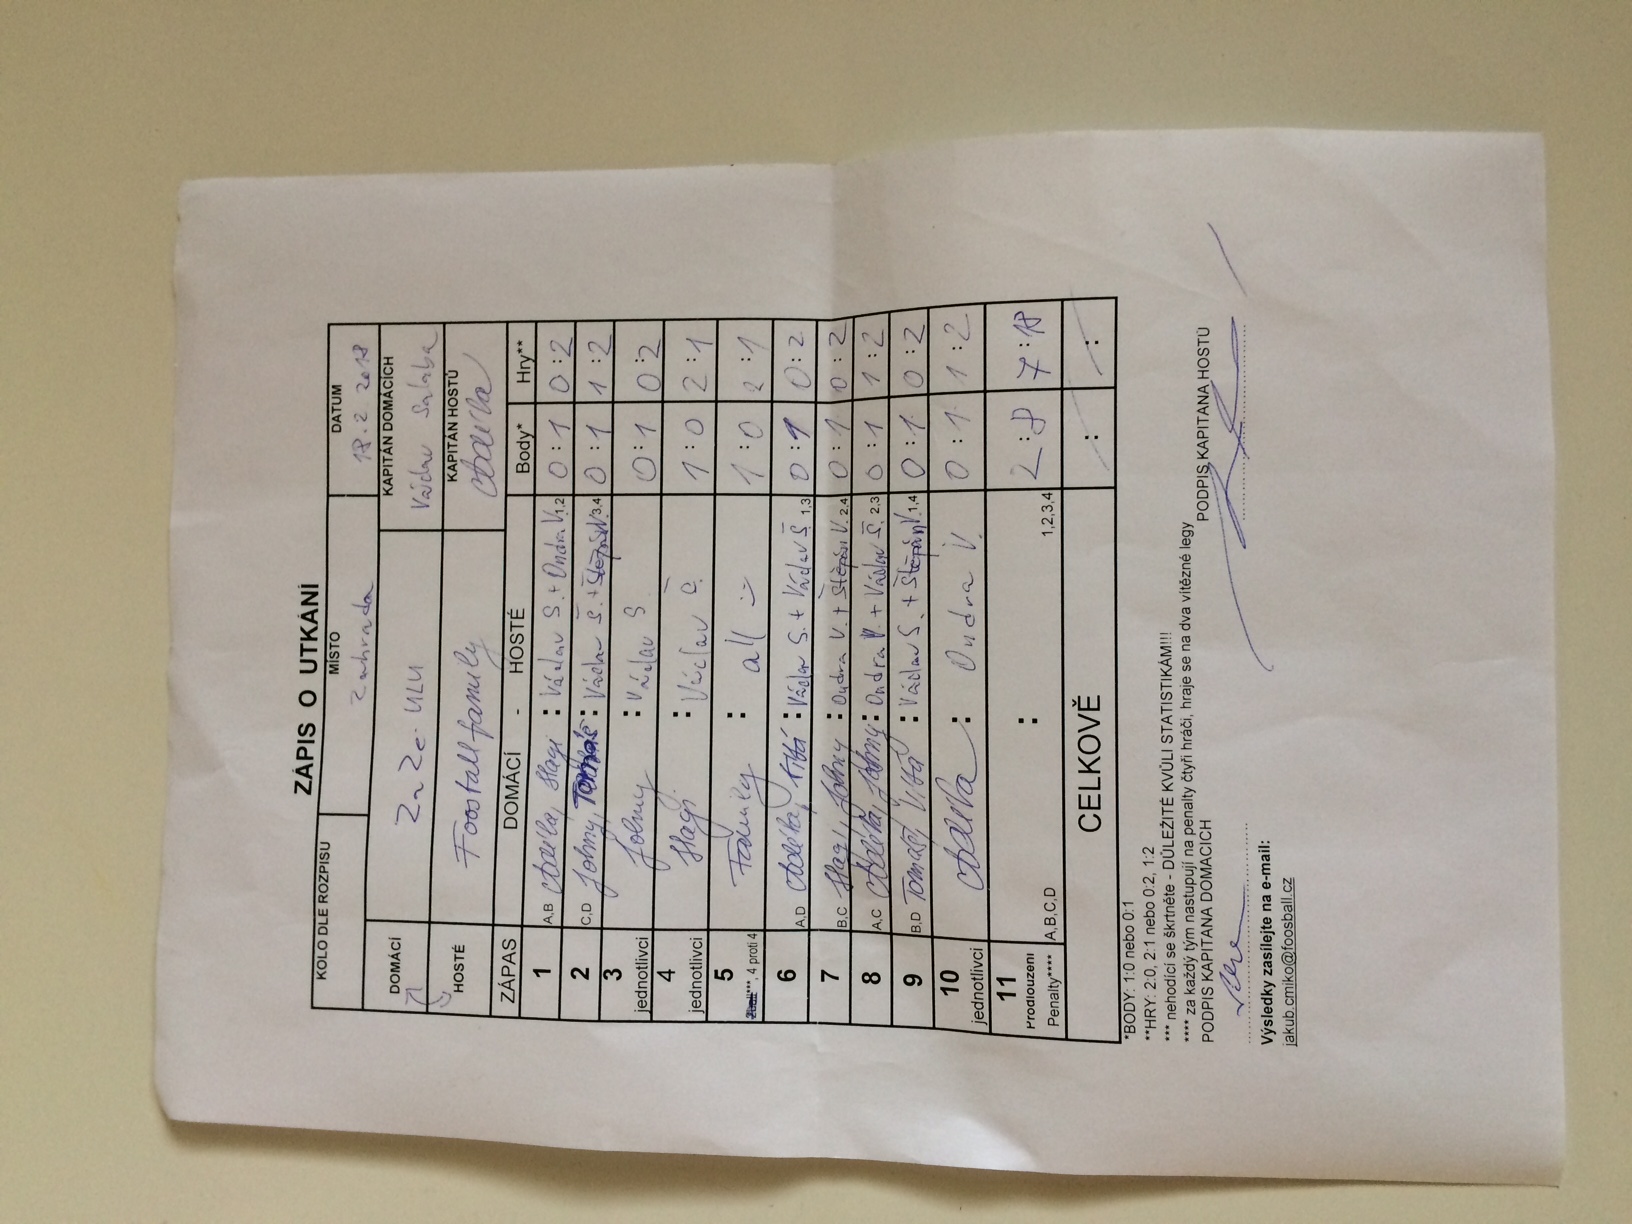 ZÁPIS O UTKÁNÍ
KOLO DLE ROZPISU MÍSTO DATUM
Zahrada 18.2 2018
DOMÁCÍ Za Ze ULU KAPITÁN DOMÁCÍCH
Václav
HOSTÉ Foosballfamily KAPITÁN HOSTŮ
ZÁPAS DOMÁCÍ - HOSTÉ Body* Hry**
1 A,B Hagi : Václav S. + Ondra V. 1,2 0 : 1 0 : 2
2 C,D Johny, Tomáš : Václav Š. + Štěpán V. 3,4 0 : 1 1 : 2
3 jednotlivci Johny : Václav S. 0 : 1 0 : 2
4 jednotlivci Hagi : Václav Š. 1 : 0 2 : 1
5 2ball***, 4 proti 4 Family : all 1 : 0 2 : 1
6 A,D : Václav S. + Václav Š. 1,3 0 : 1 0 : 2
7 B,C Hagi, Johny : Ondra V. + Štěpán V. 2,4 0 : 1 0 : 2
8 A,C Johny : Ondra V. + Václav Š. 2,3 0 : 1 1 : 2
9 B,D Tomáš, : Václav S. + Štěpán V. 1,4 0 : 1 0 : 2
10 jednotlivci : Ondra V. 0 : 1 1 : 2
11 Prodloužení Penalty**** A,B,C,D : 1,2,3,4 2 : 8 7 : 18
CELKOVĚ : :
*BODY: 1:0 nebo 0:1
**HRY: 2:0, 2:1 nebo 0:2, 1:2
*** nehodící se škrtněte - DŮLEŽITÉ KVŮLI STATISTIKÁM!!!
**** za každý tým nastupují na penalty čtyři hráči, hraje se na dva vítězné legy
PODPIS KAPITÁNA DOMÁCÍCH PODPIS KAPITÁNA HOSTŮ
Výsledky zasílejte na e-mail:
jakub.cmiko@foosball.cz